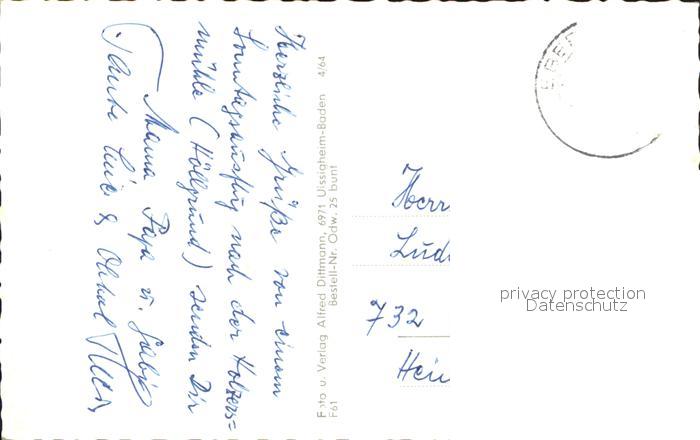 Herzliche Grüße von einem
Sonntagsausflug nach der Holzers=
mühle (Höllgrund) senden Dir
Mama Papa u. Gabi
Tante & Onkel
Foto u. Verlag Alfred Dittmann, 6971 Uissigheim-Baden 4/64
F61 Bestell-Nr. Odw. 25 bunt
Herr
Lud
732
Hei
privacy protection
Datenschutz